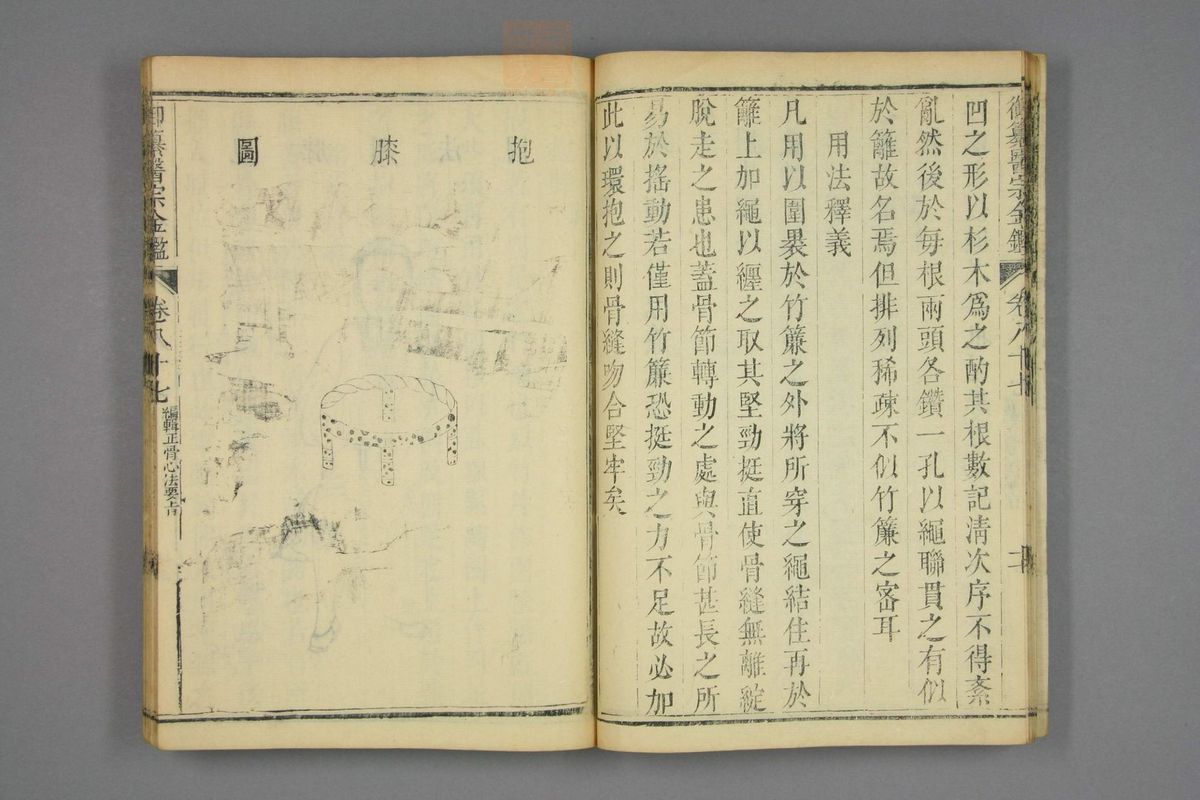 凹之形以杉木爲之酌其根數記淸次序不得紊
亂然後於每根兩頭各鑽一孔以繩聯貫之有似
於籬故名焉但排列稀疎不似竹簾之密耳
用法釋義
凡用以圍裹於竹簾之外將所穿之繩結住再於
籬上加繩以纏之取其堅勁挺直使骨縫無離綻
脫走之患也蓋骨節轉動之處與骨節甚長之所
易於搖動若僅用竹簾恐挺勁之力不足故必加
此以環抱之則骨縫吻合堅牢矣
抱膝圖
御纂醫宗金鑑
卷八十七
編輯正骨心法要旨